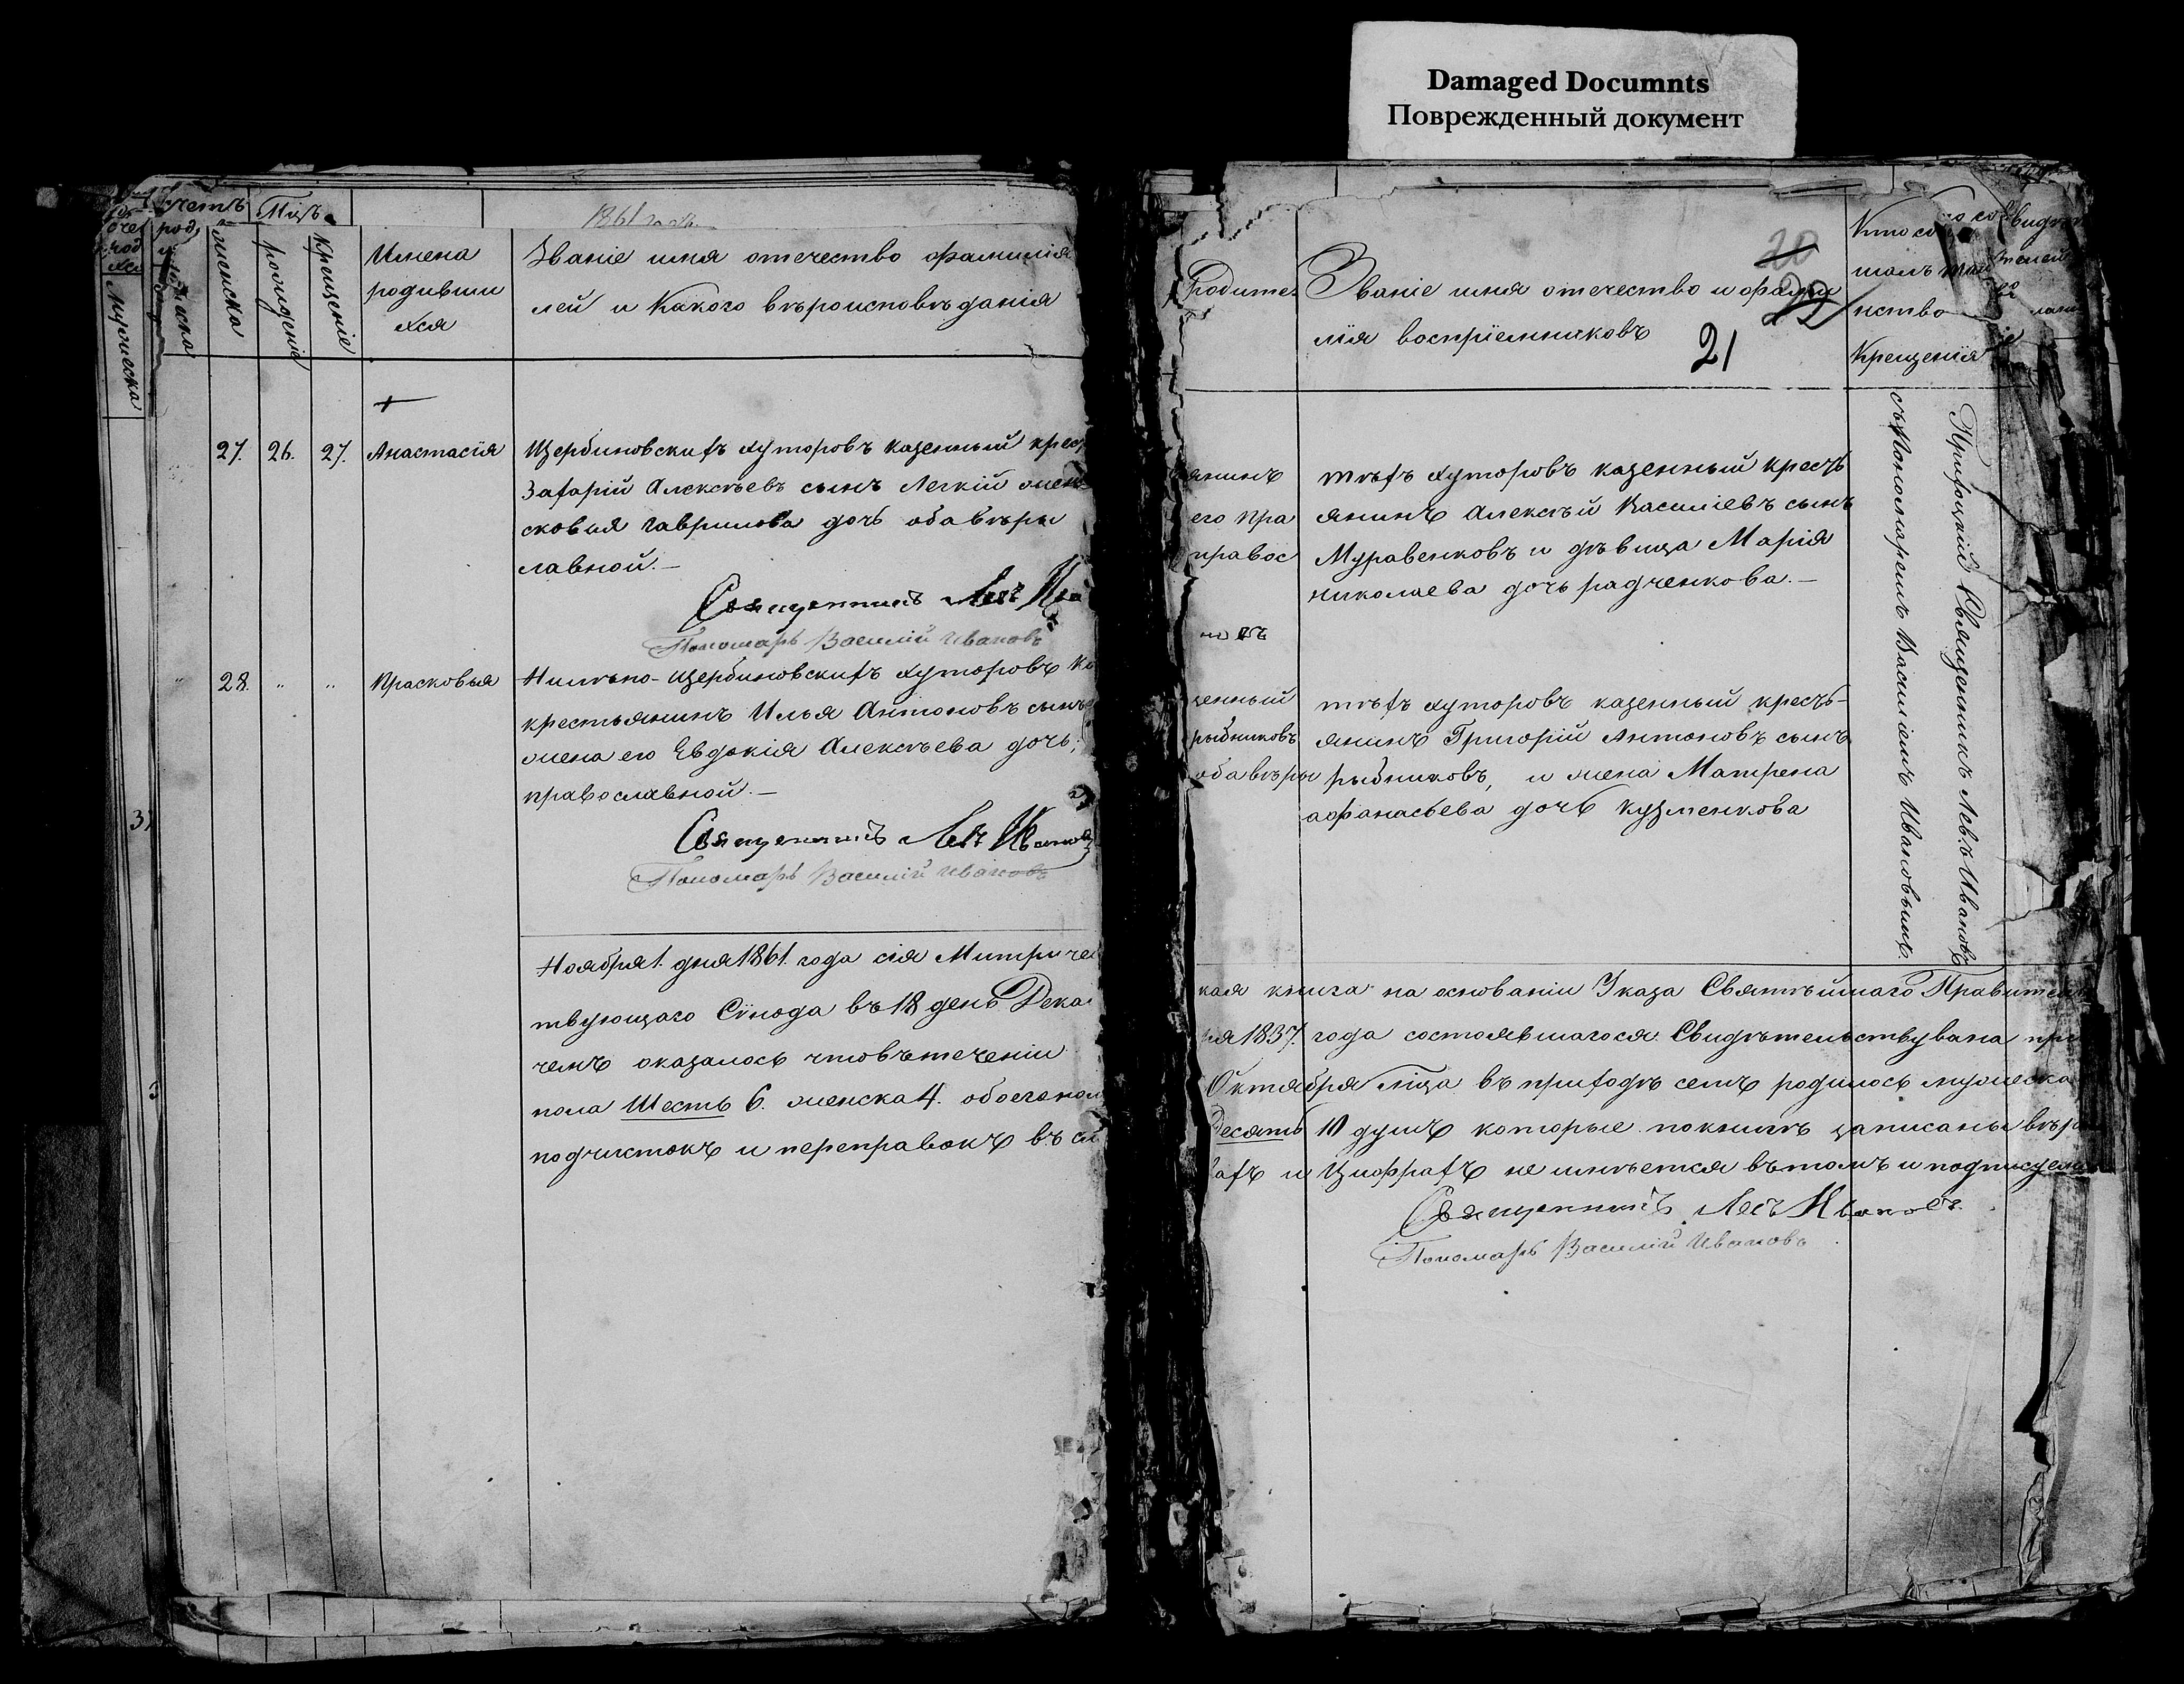 Damaged Documnts
Поврежденный документ
1861
Мцъ
Имена
родивши
хся
Званіе имя отечество фамилія
лей и Какого вѣроисповѣданія
Мужеска
женска
рожденіе
крещеніе
27. 26. 27. Анастасія
Щербиновскихъ хуторовъ казенный крес
Захарій Алексѣевъ сынъ Легкій жена
сковья Гаврилова дочь оба вѣры
лавной. —
Священникъ Левъ
Пономарь Василій Ивановъ
28. " " Прасковья
Щербиновскихъ хуторовъ ка
крестьянинъ Илья Антоновъ сынъ
жена его Евдокія Алексѣева дочь;
православной. —
Священникъ Левъ Иванов
Пономарь Василій Ивановъ
Ноября 1. дня 1861. года сія Митричес
твующаго Сѵнода въ 18 день Декаб
чемъ оказалось чтовътеченіи
пола Шесть 6. женска 4. обоегопол
подчистокъ и переправокъ въ
20
Родите
Званіе имя отечество и фами
лія воспріемниковъ
21
Кто со
шалъ таи
нство
Крещенія
янинъ
его Пра
правос
тѣхъ хуторовъ казенный кресть
янинъ Алексѣй Василіевъ сынъ
Муравенковъ и дѣвица Марія
николаева дочь радченкова. —
зенный
рыбниковъ
оба вѣры
тѣхъ хуторовъ казенный кресть-
янинъ Григорій Антоновъ сынъ
рыбниковъ, и жена Матрена
афанасьева дочь кузменкова
Приходскій Священникъ Левъ Ивановъ
съ Пономаремъ Василіемъ Ивановымъ.
кая книга на основаніи Указа Святѣйшаго Правитель
ря 1837. года состоявшагося Свидѣтельствувана при
Октября мца въ приходѣ семъ родилось мужеска
Десять 10 душъ которые покнигѣ записаны вѣр
ахъ и Цифрахъ не имѣется вътомъ и подписуем
Священникъ Левъ Ивановъ.
Пономарь Василій Ивановъ